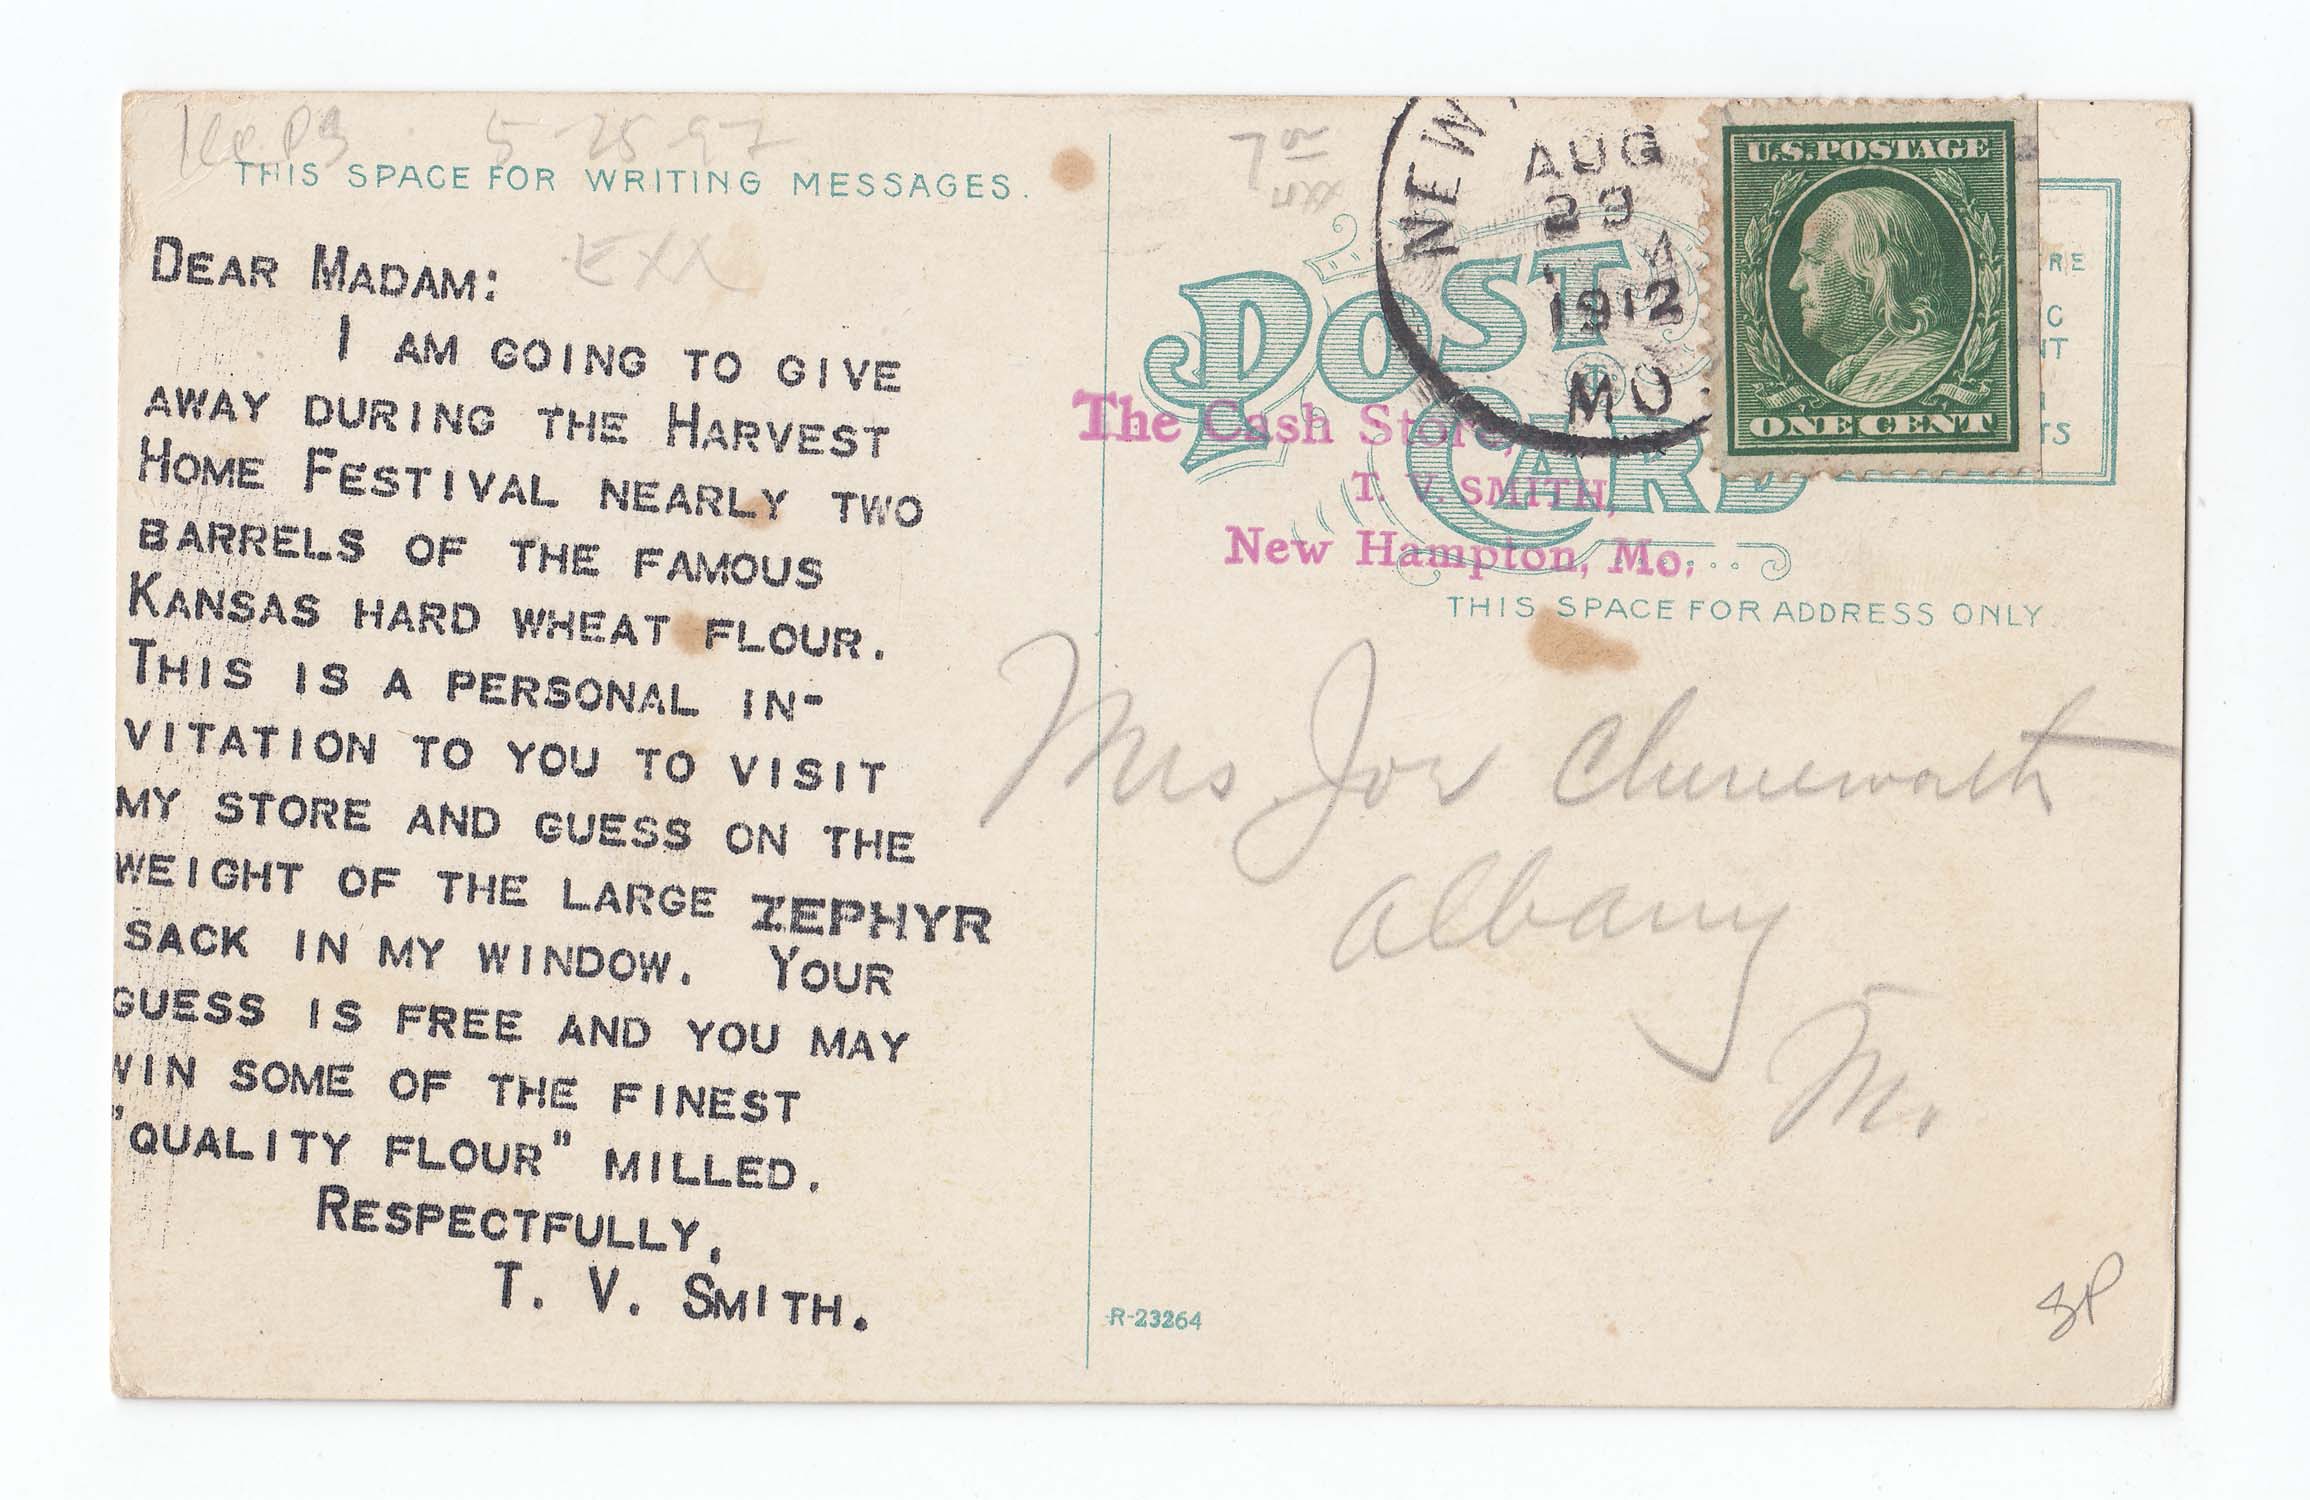 5-25-97
THIS SPACE FOR WRITING MESSAGES.
EXX
DEAR MADAM:
I AM GOING TO GIVE
AWAY DURING THE HARVEST
HOME FESTIVAL NEARLY TWO
BARRELS OF THE FAMOUS
KANSAS HARD WHEAT FLOUR.
THIS IS A PERSONAL IN-
VITATION TO YOU TO VISIT
MY STORE AND GUESS ON THE
WEIGHT OF THE LARGE ZEPHYR
SACK IN MY WINDOW. YOUR
GUESS IS FREE AND YOU MAY
WIN SOME OF THE FINEST
"QUALITY FLOUR" MILLED.
RESPECTFULLY,
T. V. SMITH.
NEW
AUG
1912
MO.
U.S. POSTAGE
ONE CENT
POST
CARD
The Cash Store,
T. V. SMITH,
New Hampton, Mo.
THIS SPACE FOR ADDRESS ONLY
Mrs. Joe Chenewoth
Albany
Mo.
R-23264